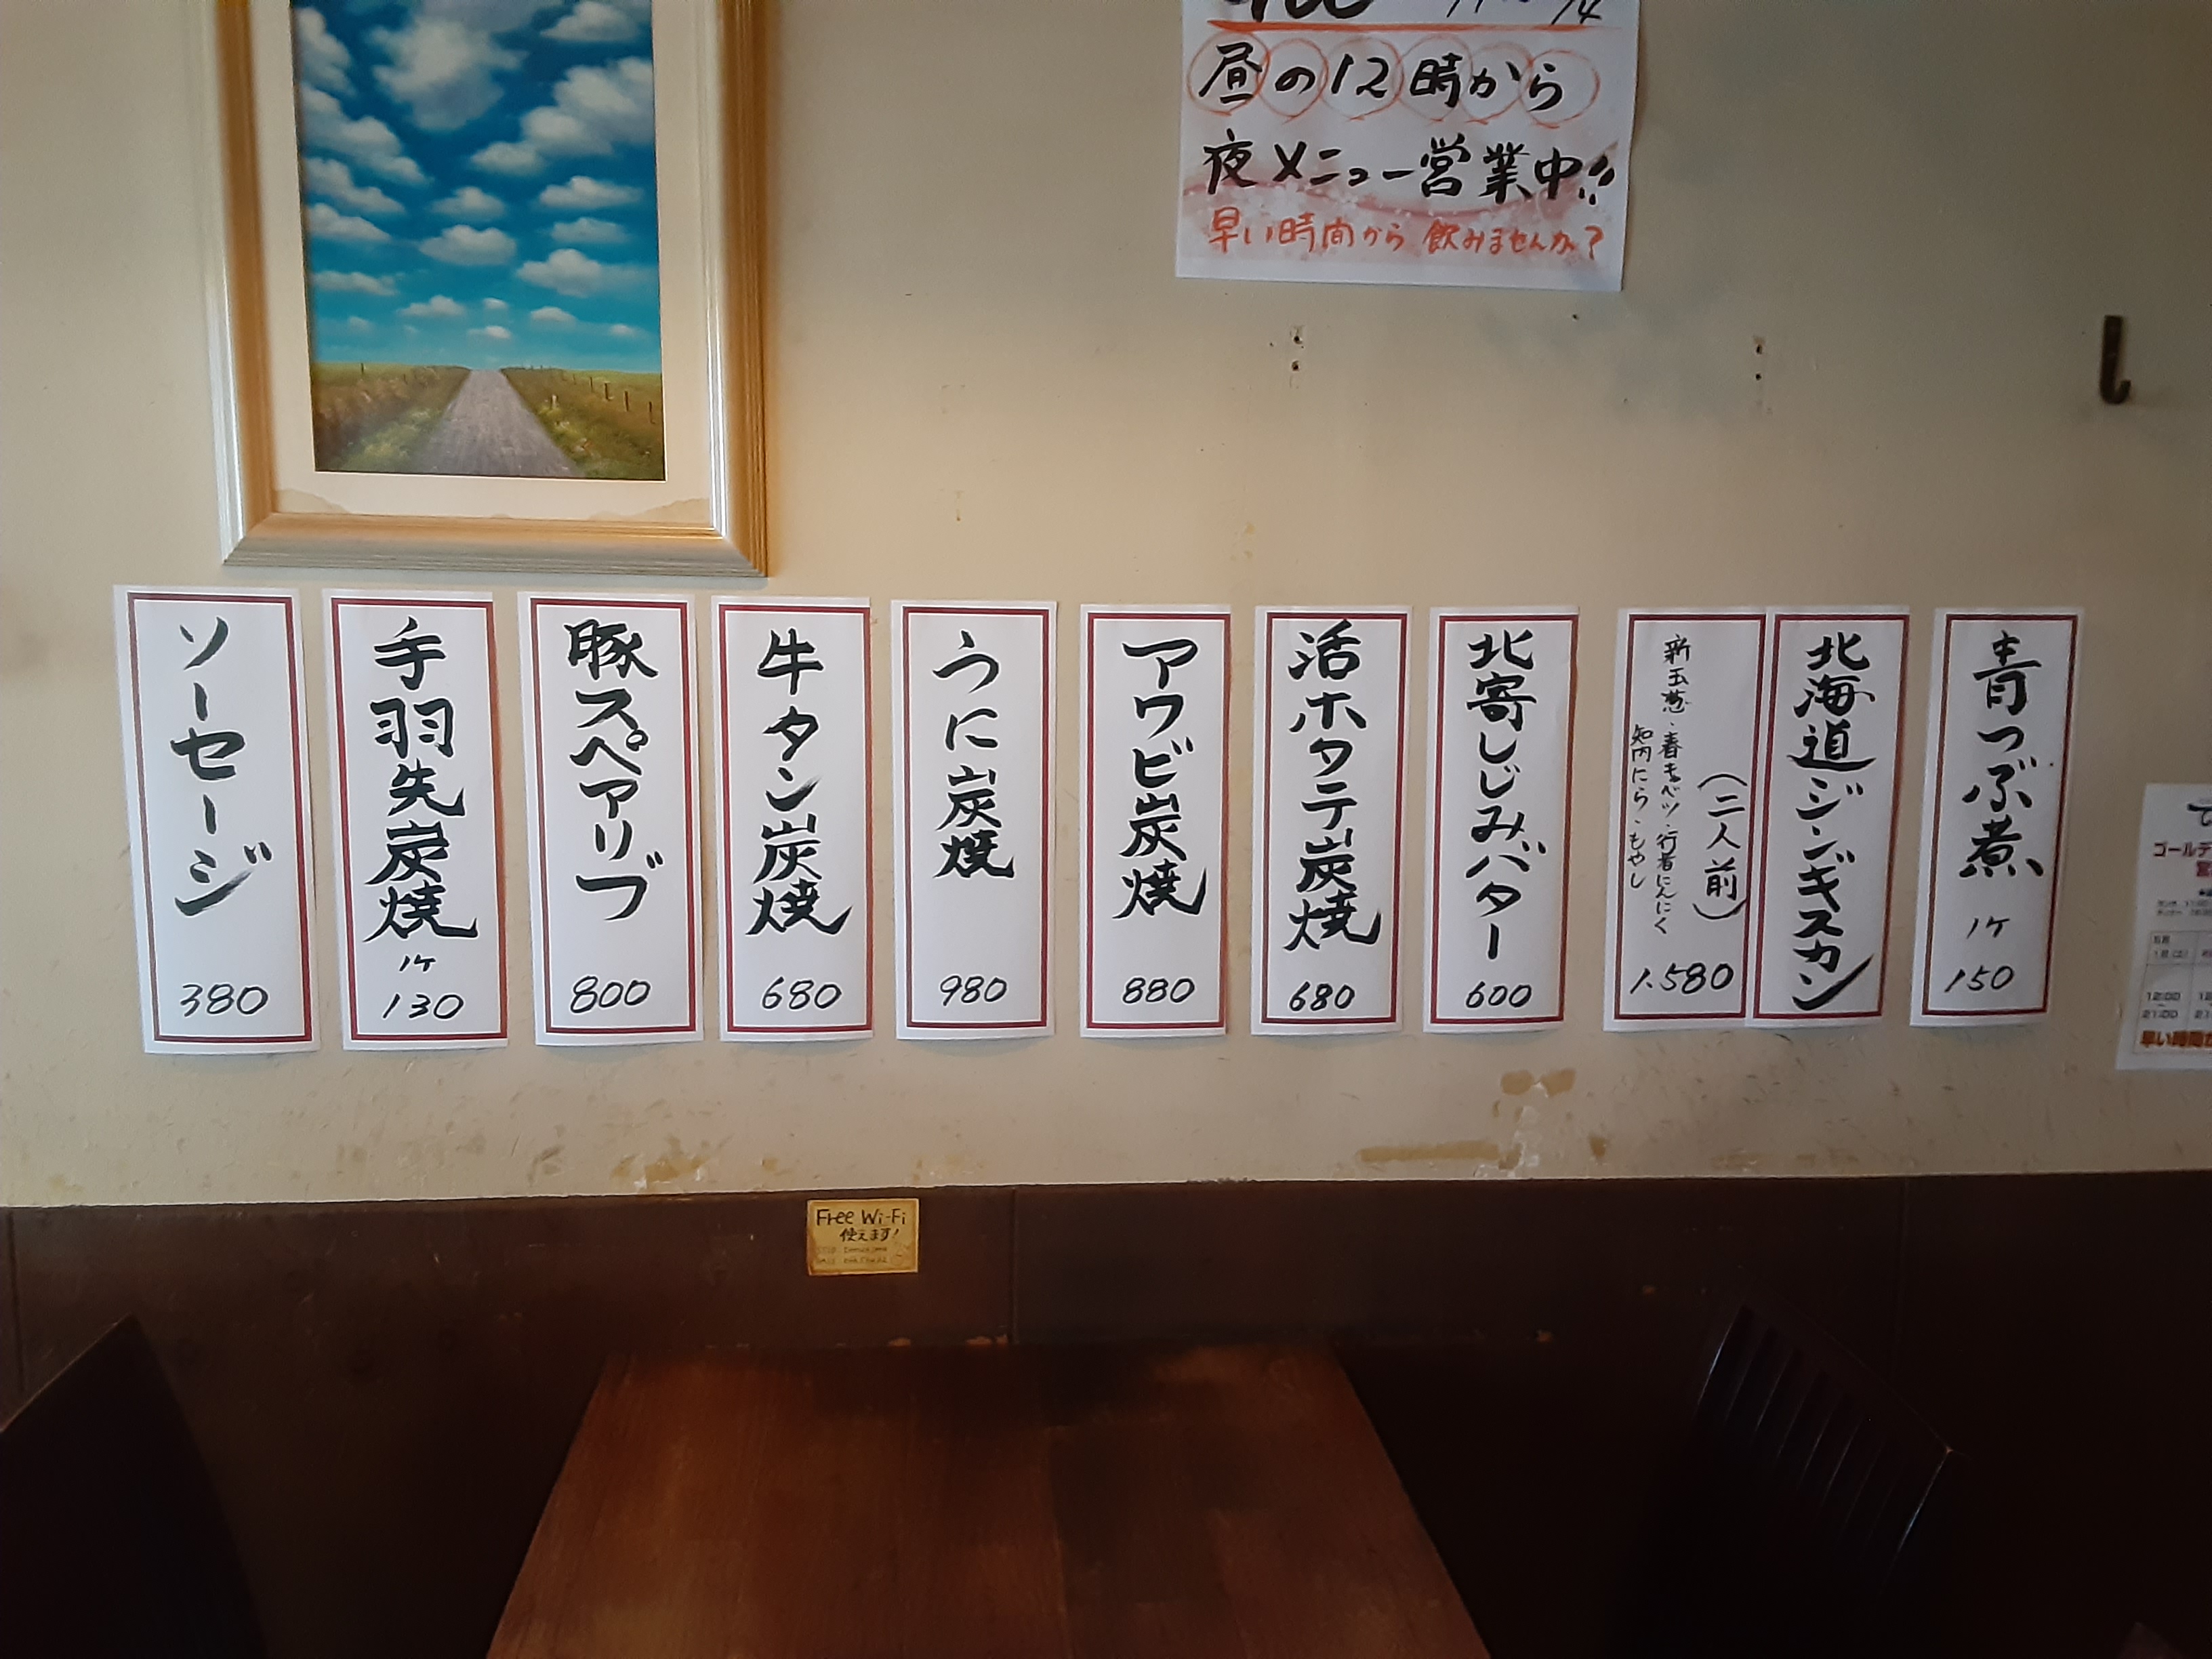 昼の12時から
夜メニュー営業中!!
早い時間から 飲みませんか?
青つぶ煮 1ケ
150
北海道ジンギスカン
(二人前)
新玉葱・春キャベツ・行者にんにく
知内にら・もやし
1.580
北寄しじみバター
600
活ホタテ炭焼
680
アワビ炭焼
880
うに炭焼
980
牛タン炭焼
680
豚スペアリブ
800
手羽先炭焼
1ケ
130
ソーセージ
380
ゴールデ
12:00
21:00
早い時間か
Free Wi-Fi
使えます!